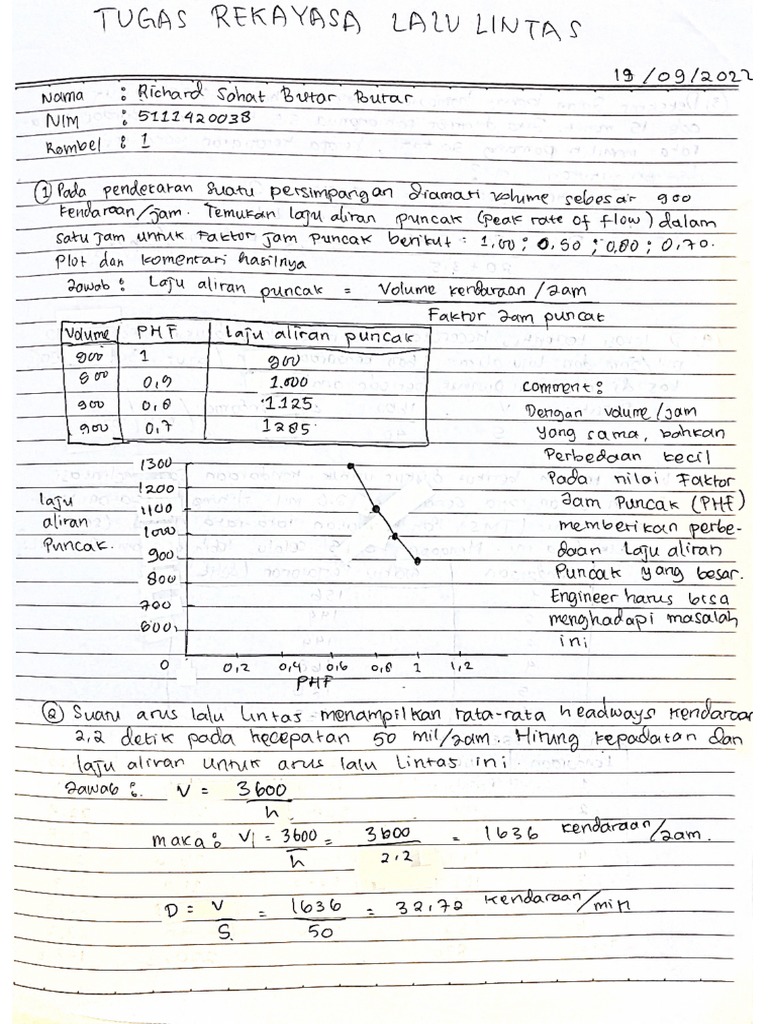 TUGAS REKAYASA LALU LINTAS
19/09/2022
Nama : Richard Sahat Butar Butar
NIM : 5111420038
Rombel : 1
① Pada pendekatan suatu persimpangan diamati volume sebesar 900
kendaraan/jam. Temukan laju aliran puncak (peak rate of flow) dalam
satu jam untuk faktor jam puncak berikut : 1,00 ; 0,50 ; 0,80 ; 0,70.
Plot dan komentari hasilnya
Jawab : Laju aliran puncak = Volume kendaraan / Jam
Faktor Jam puncak
Volume PHF Laju aliran puncak
900 1 900
900 0,9 1.000
900 0,8 1125
900 0,7 1285
Comment :
Dengan volume/jam
yang sama, bahkan
Perbedaan kecil
Pada nilai Faktor
Jam Puncak (PHF)
memberikan perbe-
daan laju aliran
Puncak yang besar.
Engineer harus bisa
menghadapi masalah
ini
laju
aliran
Puncak.
1300
1200
1100
1000
900
800
700
600
0 0,2 0,4 0,6 0,8 1 1,2
PHF
② Suatu arus lalu lintas menampilkan rata-rata headways kendaraan
2,2 detik pada kecepatan 50 mil/jam. Hitung kepadatan dan
laju aliran untuk arus lalu lintas ini
Jawab : V = 3600
h
maka : V = 3600 = 3600 = 1636 kendaraan/jam.
h 2,2
D = V = 1636 = 32,72 kendaraan/mil
S. 50